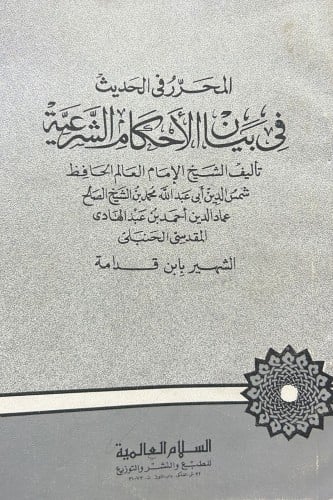 المحرر في الحديث
في بيان الأحكام الشرعية
تأليف الشيخ الإمام العالم الحافظ
شمس الدين أبي عبد الله محمد بن الشيخ الصالح
عماد الدين أحمد بن عبد الهادي
المقدسي الحنبلي
الشهير بابن قدامة
السلام العالمية
للطبع والنشر والتوزيع